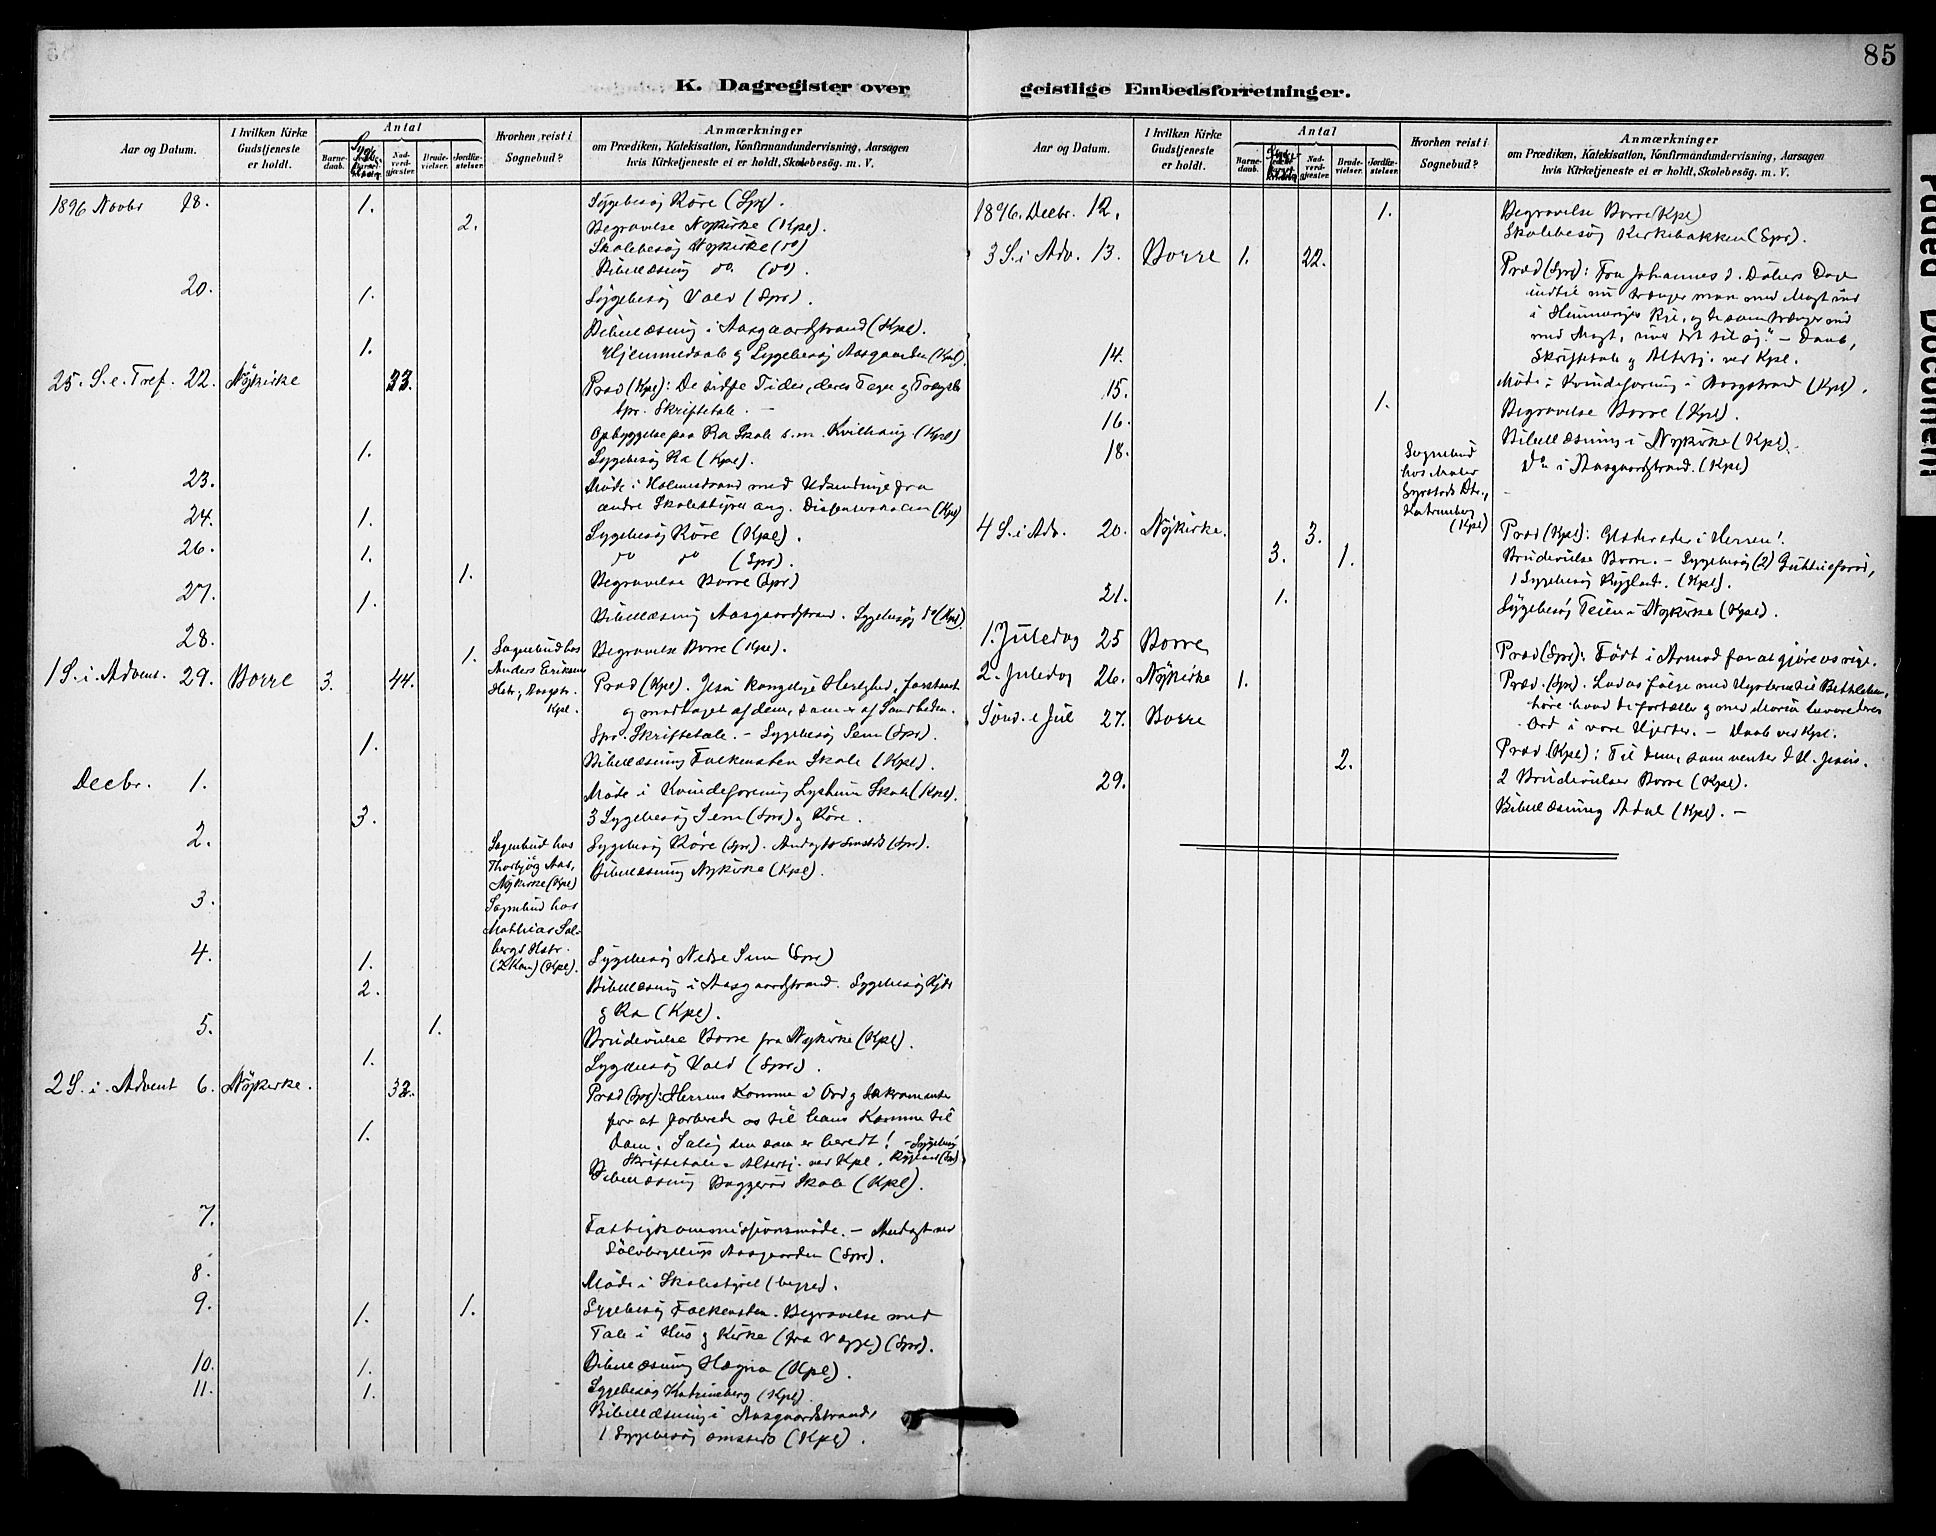 85
K. Dagregister over geistlige Embedsforretninger.
Aar og Datum.
I hvilken Kirke Gudstjeneste er holdt.
Antal
Barnedaab.
Nadverdgjæster.
Brudevielser.
Jordfæstelser.
Hvorhen reist i Sognebud?
Anmærkninger
om Prædiken, Katekisation, Konfirmandundervisning, Aarsagen
hvis Kirketjeneste ei er holdt, Skolebesøg. m. V.
1896 Novbr 18. 1. Sygebesøg Røre (Spr).
2. Begravelse Nykirke (Kpl).
Skolebesøg Nykirke (do)
Bibellæsning do. (do).
20. 1. Sygebesøg Vold (Spr).
Bibellæsning i Aasgaardstrand (Kpl).
1. Hjemmedaab og Sygebesøg Aasgaarden (Kpl).
25. S. e. Tref. 22. Nykirke 33. Præd (Kpl): De sidste Tider, deres Farer og Trøst
Spr. Skriftetale. -
Opbyggelse paa Ra Skole s. m. Kvilhaug (Kpl)
1. Sygebesøg Ra (Kpl).
23. Møde i Holmestrand med Udsendinge fra
andre Skolestyrer ang. (Kpl)
24. 1. Sygebesøg Røre (Kpl).
26. 1. do do (Spr).
1. Begravelse Borre (Spr)
27. 1. Bibellæsning Aasgaardstrand. Sygebesøg do (Kpl).
28. 1. Sognebud hos Begravelse Borre (Kpl).
Anders Eriksens
Hstr, Aasgstr.
Kpl.
1 S. i. Advent. 29. Borre 3. 44. Præd (Kpl). Jesu kongelige Herlighed, forstaaet
og modtaget af dem, som er af Sandheden.
Spr. Skriftetale. - Sygebesøg Sem (Spr).
1. Bibellæsning Falkensten Skole (Kpl).
Decbr. 1. Møde i Kvindeforening Lysheim Skole (Kpl).
3. 3 Sygebesøg Sem (Spr) og Røre.
2. Sognebud hos Sygebesøg Røre (Spr). Andagt (Spr).
Thorbjøg Aas, Bibellæsning Nykirke (Kpl).
Nykirke (Kpl)
3. Sognebud hos
Mathias Sol-
bergs Hstr.
(2 Kom) (Kpl).
4. 1. Sygebesøg Nedre Sem (Spr)
2. Bibellæsning i Aasgaardstrand. Sygebesøg
og Ra (Kpl).
5. 1. Brudevielse Borre fra Nykirke (Kpl).
1. Sygebesøg Vold (Spr).
2 S. i. Advent 6. Nykirke. 32. Præd (Spr): Herrens Komme i Ord og Sakramenter
for at forberede os til hans Komme til
1. Dom. Salig den som er beredt! - Sygebesøg
Skriftetale & Altertj. ved Kpl. Rygland (Spr)
Bibellæsning Baggerød Skole (Kpl).
7. Fattigkommissionsmøde. - Andagt ved
Sølvbryllup Aasgaarden (Spr).
8. Møde i Skolestyret (begge).
9. 1. 1. Sygebesøg Falkensten. Begravelse med
Tale i Hus og Kirke (fra) (Spr).
10. 1. Bibellæsning Hegna (Kpl).
11. 1. Sygebesøg Katrineberg (Kpl)
Bibellæsning i Aasgaardstrand,
1 Sygebesøg smsteds (Kpl).
Aar og Datum.
I hvilken Kirke Gudstjeneste er holdt.
Antal
Barnedaab.
Nadverdgjæster.
Brudevielser.
Jordfæstelser.
Hvorhen reist i Sognebud?
Anmærkninger
om Prædiken, Katekisation, Konfirmandundervisning, Aarsagen
hvis Kirketjeneste ei er holdt, Skolebesøg. m. V.
1896. Decbr. 12. 1. Begravelse Borre (Kpl)
Skolebesøg Kirkebakken (Spr).
3 S. i Adv. 13. Borre 1. 22. Præd (Spr): Fra Johannes d. Døbers Dage
indtil nu trænger man med Magt ind
i Himmeriges Rige, og de som trænger ind
med Magt, river det til sig." - Daab,
Skriftetale og Altertj. ved Kpl.
14. Møde i Kvindeforening i Aasgstrand (Kpl).
15. 1. Begravelse Borre (Kpl).
16. Bibellæsning i Nykirke (Kpl).
18. Sognebud do i Aasgaardstrand. (Kpl)
hos Maler
Katrineberg
(Kpl)
4 S. i Adv. 20. Nykirke. 3. Præd (Kpl): Glæder eder i Herren!
3. 1. Brudevielse Borre. - Sygebesøg (2)
1 Sygebesøg Rygland. (Kpl).
21. 1. Sygebesøg Teien i Nykirke (Kpl).
1. Juledag 25 Borre Præd (Spr): Født i Armod for at gjøre os rige.
2. Juledag 26. Nykirke 1. Præd. (Spr). Lad os følge med Hyrderne til Bethlehem,
høre hvad de fortæller og med Maria bevare deres
Ord i vore Hjerter. - Daab ved Kpl.
Sønd. e Jul 27. Borre Præd (Kpl): Til dem, som venter d H. Jesus.
2. 2 Brudevielser Borre (Kpl).
29. Bibellæsning Adal (Kpl). -